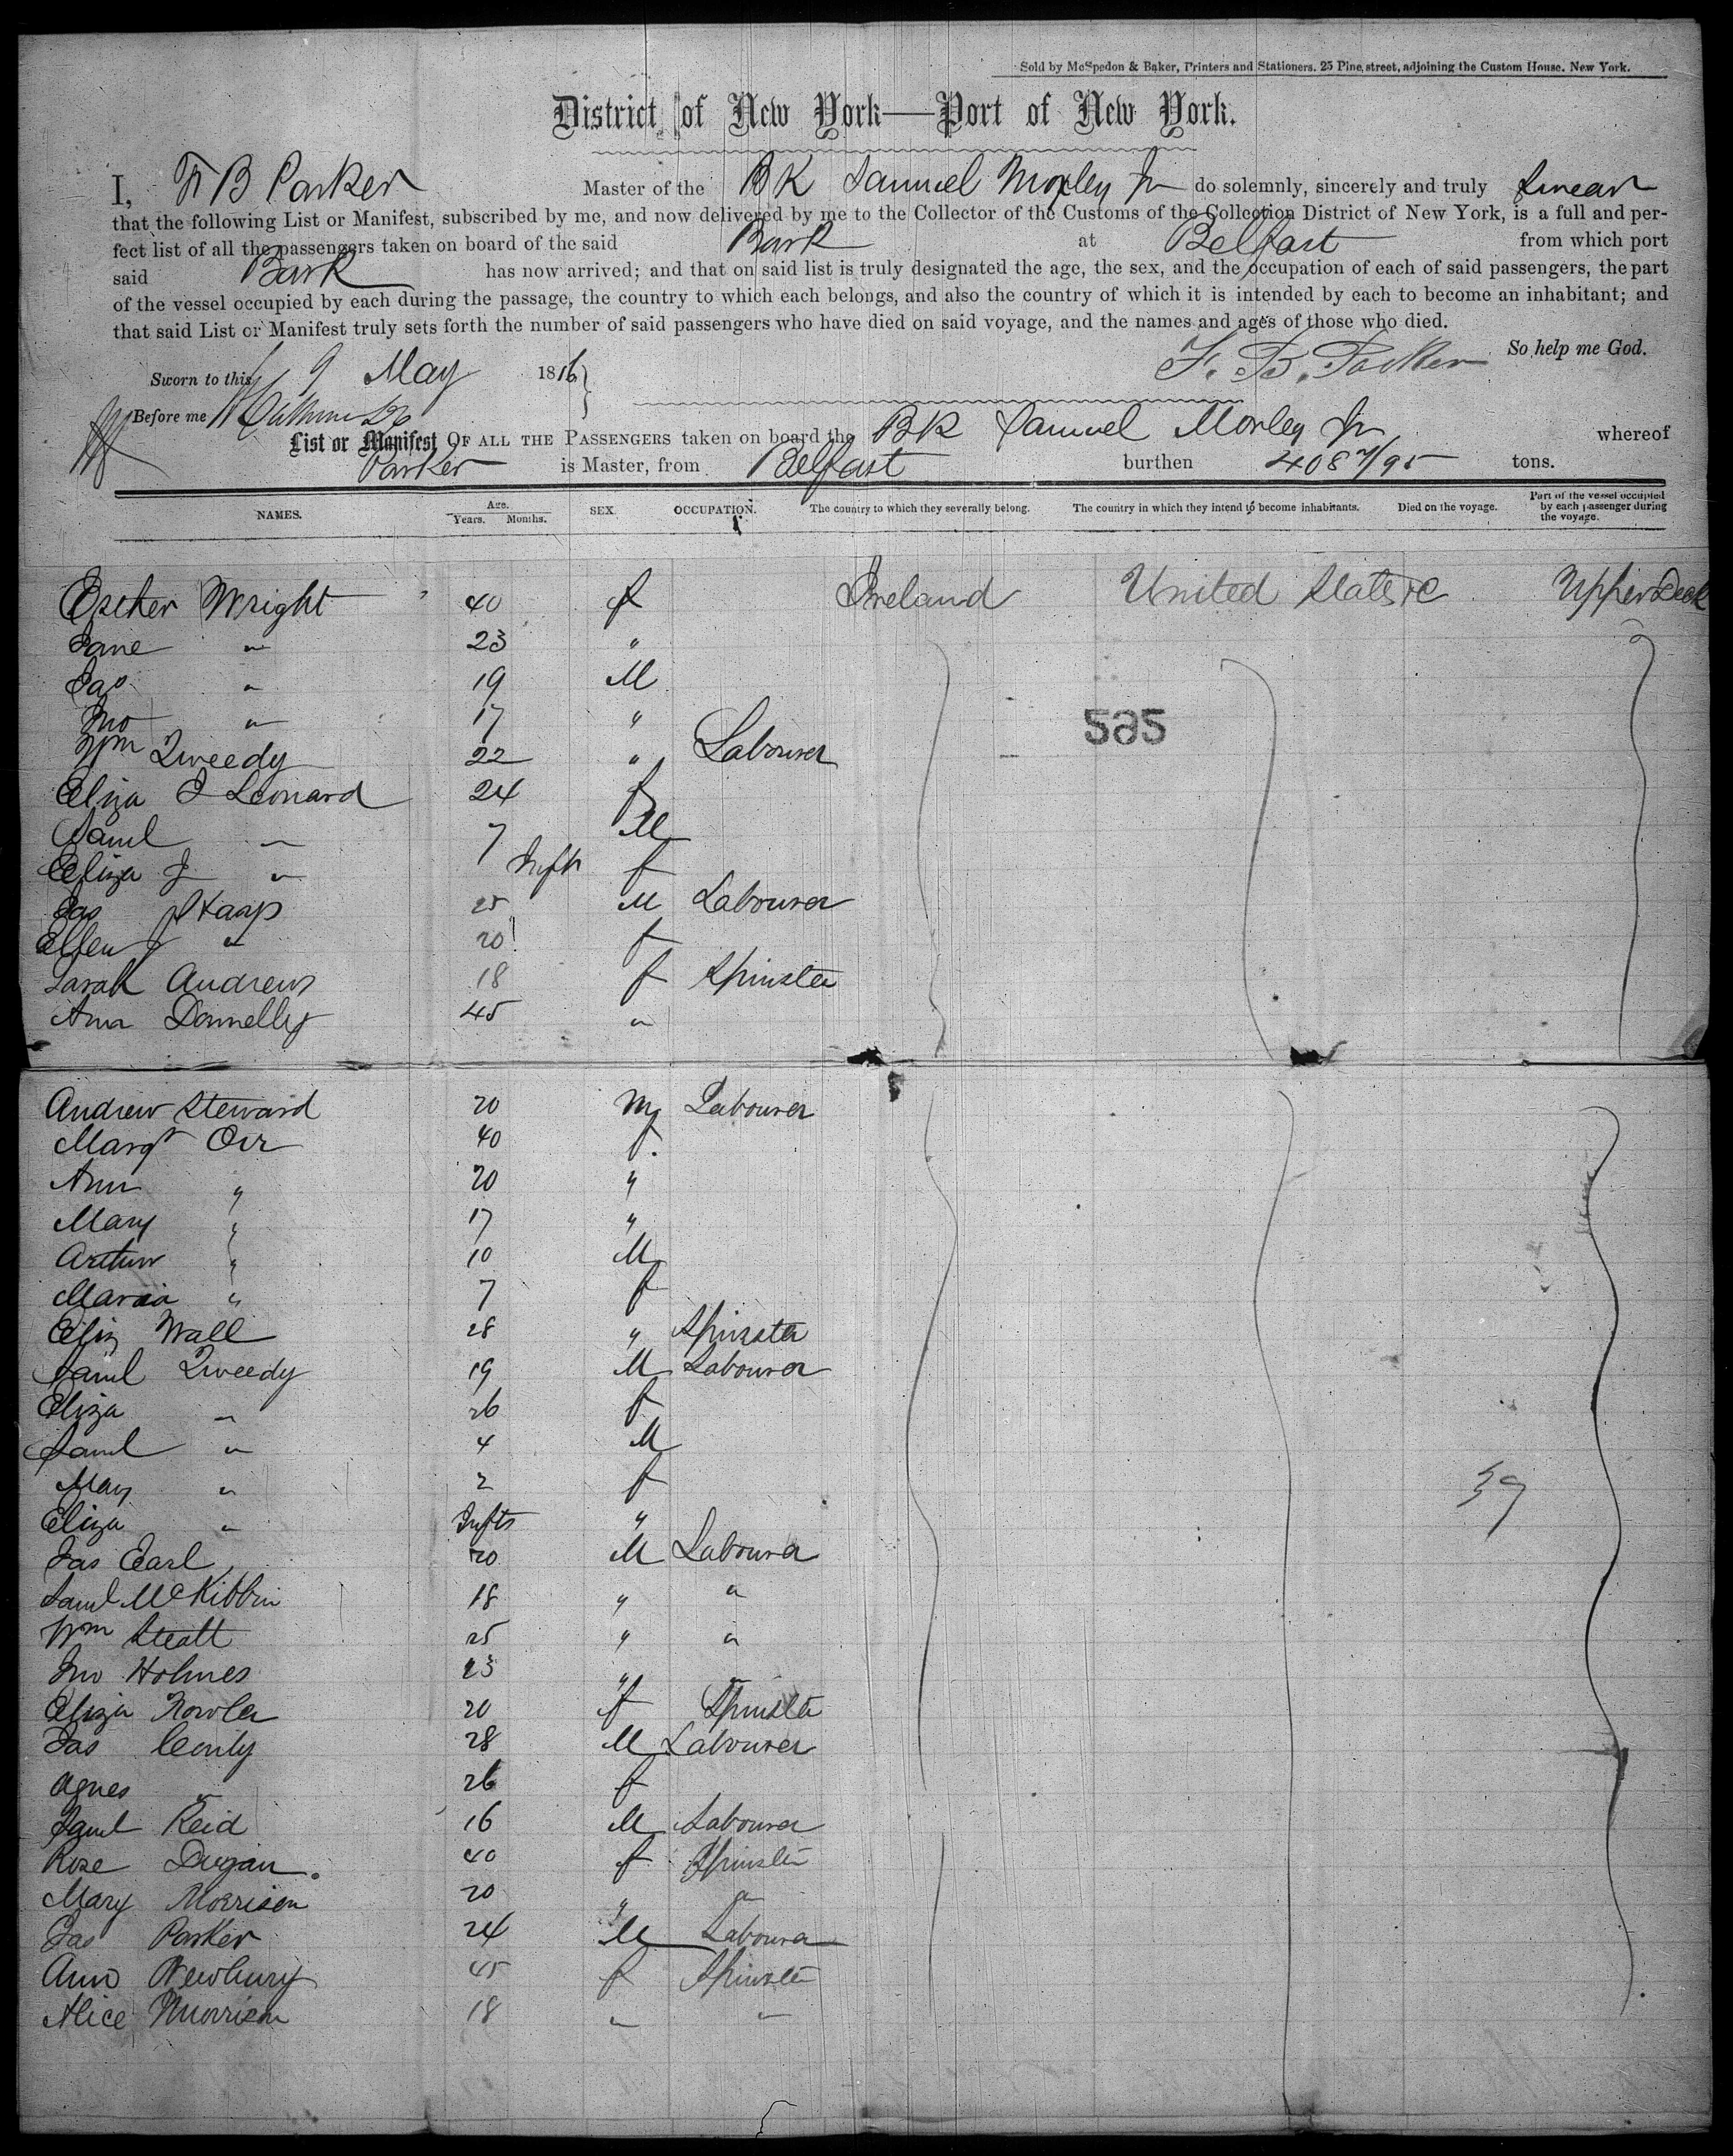 Sold by McSpedon & Baker, Printers and Stationers. 25 Pine street, adjoining the Custom House. New York.
District of New York—Port of New York.
I, F B Parker Master of the BK Samuel Moxley Jr do solemnly, sincerely and truly swear
that the following List or Manifest, subscribed by me, and now delivered by me to the Collector of the Customs of the Collection District of New York, is a full and per-
fect list of all the passengers taken on board of the said Bark at Belfast from which port
said Bark has now arrived; and that on said list is truly designated the age, the sex, and the occupation of each of said passengers, the part
of the vessel occupied by each during the passage, the country to which each belongs, and also the country of which it is intended by each to become an inhabitant; and
that said List or Manifest truly sets forth the number of said passengers who have died on said voyage, and the names and ages of those who died.
So help me God.
Sworn to this 9 May 18 F. B. Parker
Before me
List or Manifest OF ALL THE PASSENGERS taken on board the BK Samuel Moxley Jr whereof
Parker is Master, from Belfast burthen 408 7/95 tons.
NAMES. Age. Years. Months. SEX. OCCUPATION. The country to which they severally belong. The country in which they intend to become inhabitants. Died on the voyage. Part of the vessel occupied by each passenger during the voyage.
Esther Wright 40 f Ireland United States Upper Deck
Jane " 23 "
Jas " 19 M
Jno " 17 "
525
Wm Tweedy 22 " Labourer
Eliza J Leonard 24 f
Saml " 7 M
Eliza J " Inft f
Jas 25 M Labourer
Ellen J " 20 f
Sarah Andrews 18 f Spinster
Ann Donnelly 45 "
Andrew Steward 20 M Labourer
Margt Orr 40 f
Ann " 20 "
Mary " 17 "
Arthur " 10 M
Maria " 7 f
Eliz Wall 28 " Spinster
Saml Tweedy 19 M Labourer
Eliza " 26 f
Saml " 4 M
Mary " 2 f
39
Eliza " Infts "
Jas Earl 20 M Labourer
Saml McKibbin 18 " "
Wm 25 " "
Jno Holmes 23 " "
Eliza 20 f Spinster
Jas 28 M Labourer
Agnes " 26 f
Saml Reid 16 M Labourer
Rose Dugan 40 f Spinster
Mary Morrison 20 " "
Jas Parker 24 M Labourer
Ann Newbury 45 f Spinster
Alice Morrison 18 " "